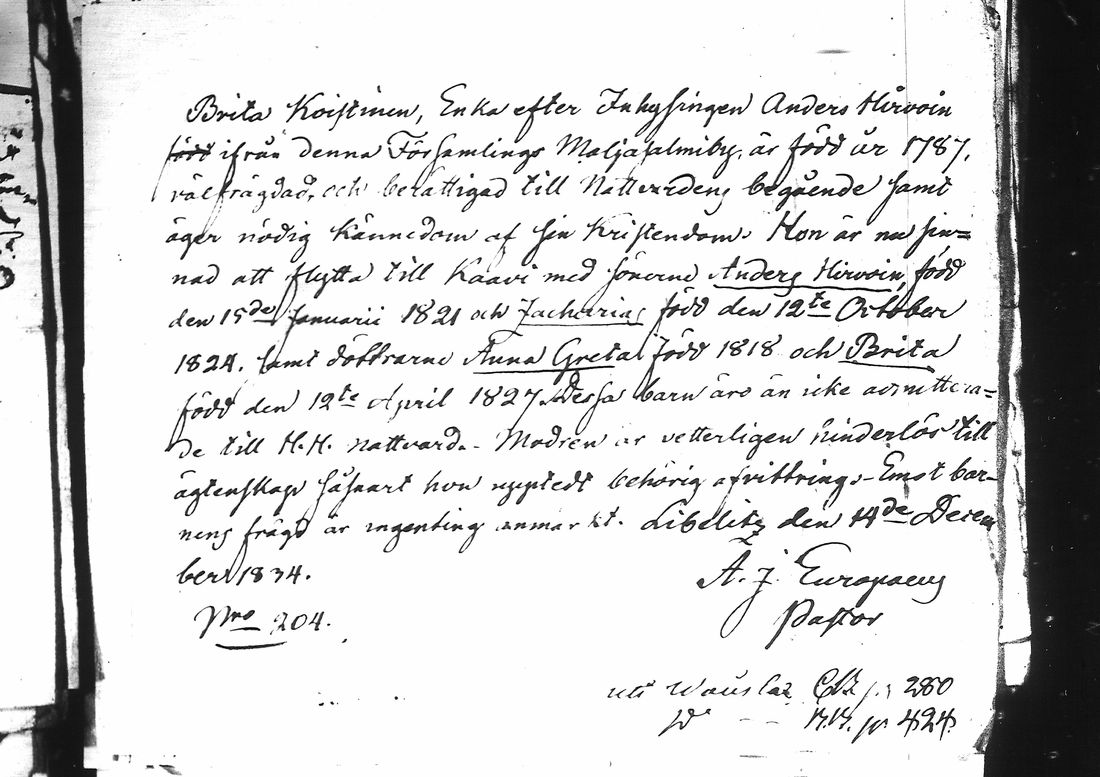 Brita Koistinen, Enka efter Inhysingen Anders Hirvoin
född ifrån denna Församlings Maljasalmiby, är född år 1787,
välfrägdad, och berättigad till Nattvardens begående samt
äger nödig kännedom af sin Kristendom. Hon är nu sin=
nad att flytta till Kaavi med sönerne Anders Hirvoin, född
den 15de Januarii 1821 och Zacharias född den 12te October
1824. samt döttrarne Anna Greta född 1818 och Brita
född den 12te April 1827. Dessa barn äro än icke admittera=
de till H.H. nattvard. - Modren är vetterligen hinderlös till
ägtenskap såsnart hon upptedt behörig afvittring. - Emot bar-
nens frägd är ingenting anmärkt. Libelitz den 14de Decem
ber 1834.
A. J. Europaeus
Pastor
Nro 204.
C.B. p. 280
N.B. p. 424.